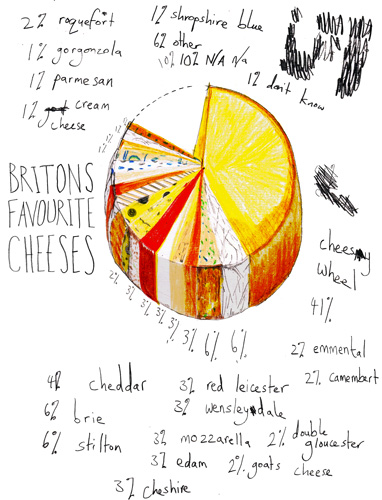 2% roquefort
1% gorgonzola
1% parmesan
1% cream
cheese
1% shropshire blue
6% other
10% 10% N/A N/a
1% don't know
BRITONS
FAVOURITE
CHEESES
cheesy
wheel
41%
2% 3% 3% 3% 3% 3% 6% 6%
2% emmental
2% camembert
cheddar
6% brie
6% stilton
3% red leicester
3% wensleydale
3% mozzarella
3% edam
3% cheshire
2% double
gloucester
2% goats cheese